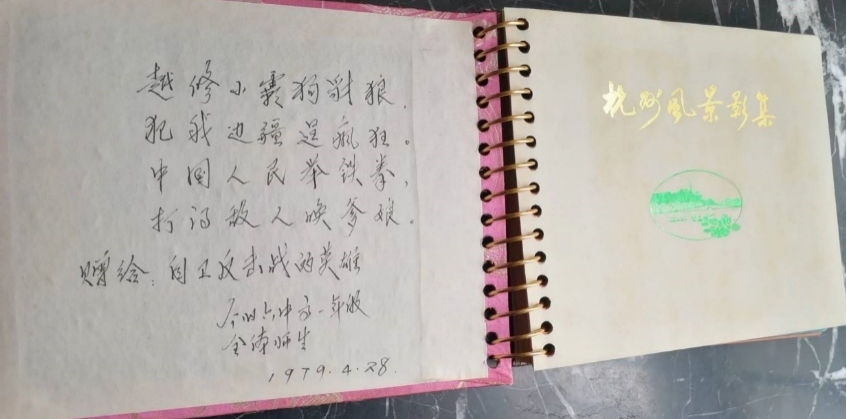 越修小霸狗科狼，
犯我边疆逞疯狂。
中国人民举铁拳，
打得敌人唤爹娘。
赠给：自卫反击战的英雄
六中高一年级
全体师生
1979.4.28.
杭州风景影集